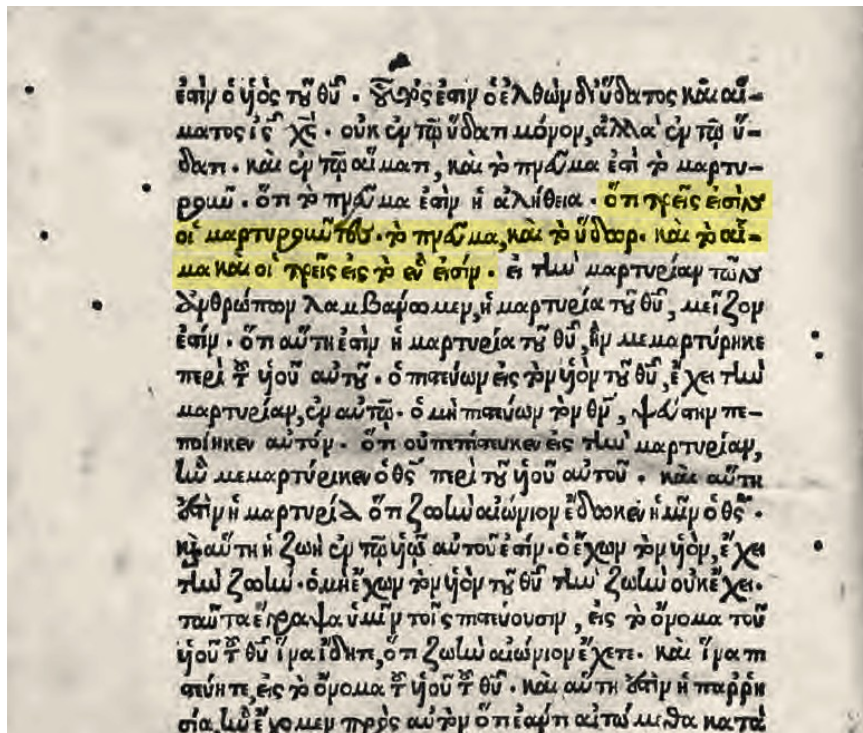 ἐστὶν ὁ υἱὸς τοῦ θῦ. οὗτός ἐστιν ὁ ἐλθὼν δι' ὕδατος καὶ αἵ-
ματος ἰς χς. οὐκ ἐν τῷ ὕδατι μόνον, ἀλλὰ ἐν τῷ ὕ-
δατι. καὶ ἐν τῷ αἵματι, καὶ τὸ πνεῦμα ἐστὶ τὸ μαρτυ-
ροῦν. ὅτι τὸ πνεῦμα ἐστὶν ἡ ἀλήθεια. ὅτι τρεῖς εἰσὶν
οἱ μαρτυροῦντες. τὸ πνεῦμα, καὶ τὸ ὕδωρ. καὶ τὸ αἷ-
μα καὶ οἱ τρεῖς εἰς τὸ ἓν εἰσίν. εἰ τὴν μαρτυρίαν τῶν
ἀνθρώπων λαμβάνωμεν, ἡ μαρτυρία τοῦ θῦ, μείζων
ἐστίν. ὅτι αὕτη ἐστὶν ἡ μαρτυρία τοῦ θῦ, ἣν μεμαρτύρηκε
περὶ τοῦ υἱοῦ αὐτοῦ. ὁ πιστεύων εἰς τὸν υἱὸν τοῦ θῦ, ἔχει τὴν
μαρτυρίαν, ἐν αὐτῷ. ὁ μὴ πιστεύων τὸν θν, ψεύστην πε-
ποίηκεν αὐτόν. ὅτι οὐ πεπίστευκεν εἰς τὴν μαρτυρίαν,
ἣν μεμαρτύρικεν ὁ θς περὶ τοῦ υἱοῦ αὐτοῦ. καὶ αὕτη
ἐστὶν ἡ μαρτυρία ὅτι ζωὴν αἰώνιον ἔδωκεν ἡμῖν ὁ θς.
καὶ αὕτη ἡ ζωὴ ἐν τῷ υἱῷ αὐτοῦ ἐστίν. ὁ ἔχων τὸν υἱὸν, ἔχει
τὴν ζωὴν. ὁ μὴ ἔχων τὸν υἱὸν τοῦ θῦ τὴν ζωὴν οὐκ ἔχει.
ταῦτα ἔγραψα ὑμῖν τοῖς πιστεύουσιν, εἰς τὸ ὄνομα τοῦ
υἱοῦ τοῦ θῦ ἵνα ἴδητε, ὅτι ζωὴν αἰώνιον ἔχετε. καὶ ἵνα πι
στεύητε, εἰς τὸ ὄνομα τοῦ υἱοῦ τοῦ θῦ. καὶ αὕτη ἐστὶν ἡ παρρη
σία, ἣν ἔχομεν πρὸς αὐτὸν ὅτι ἐάν τι αἰτώμεθα κατὰ